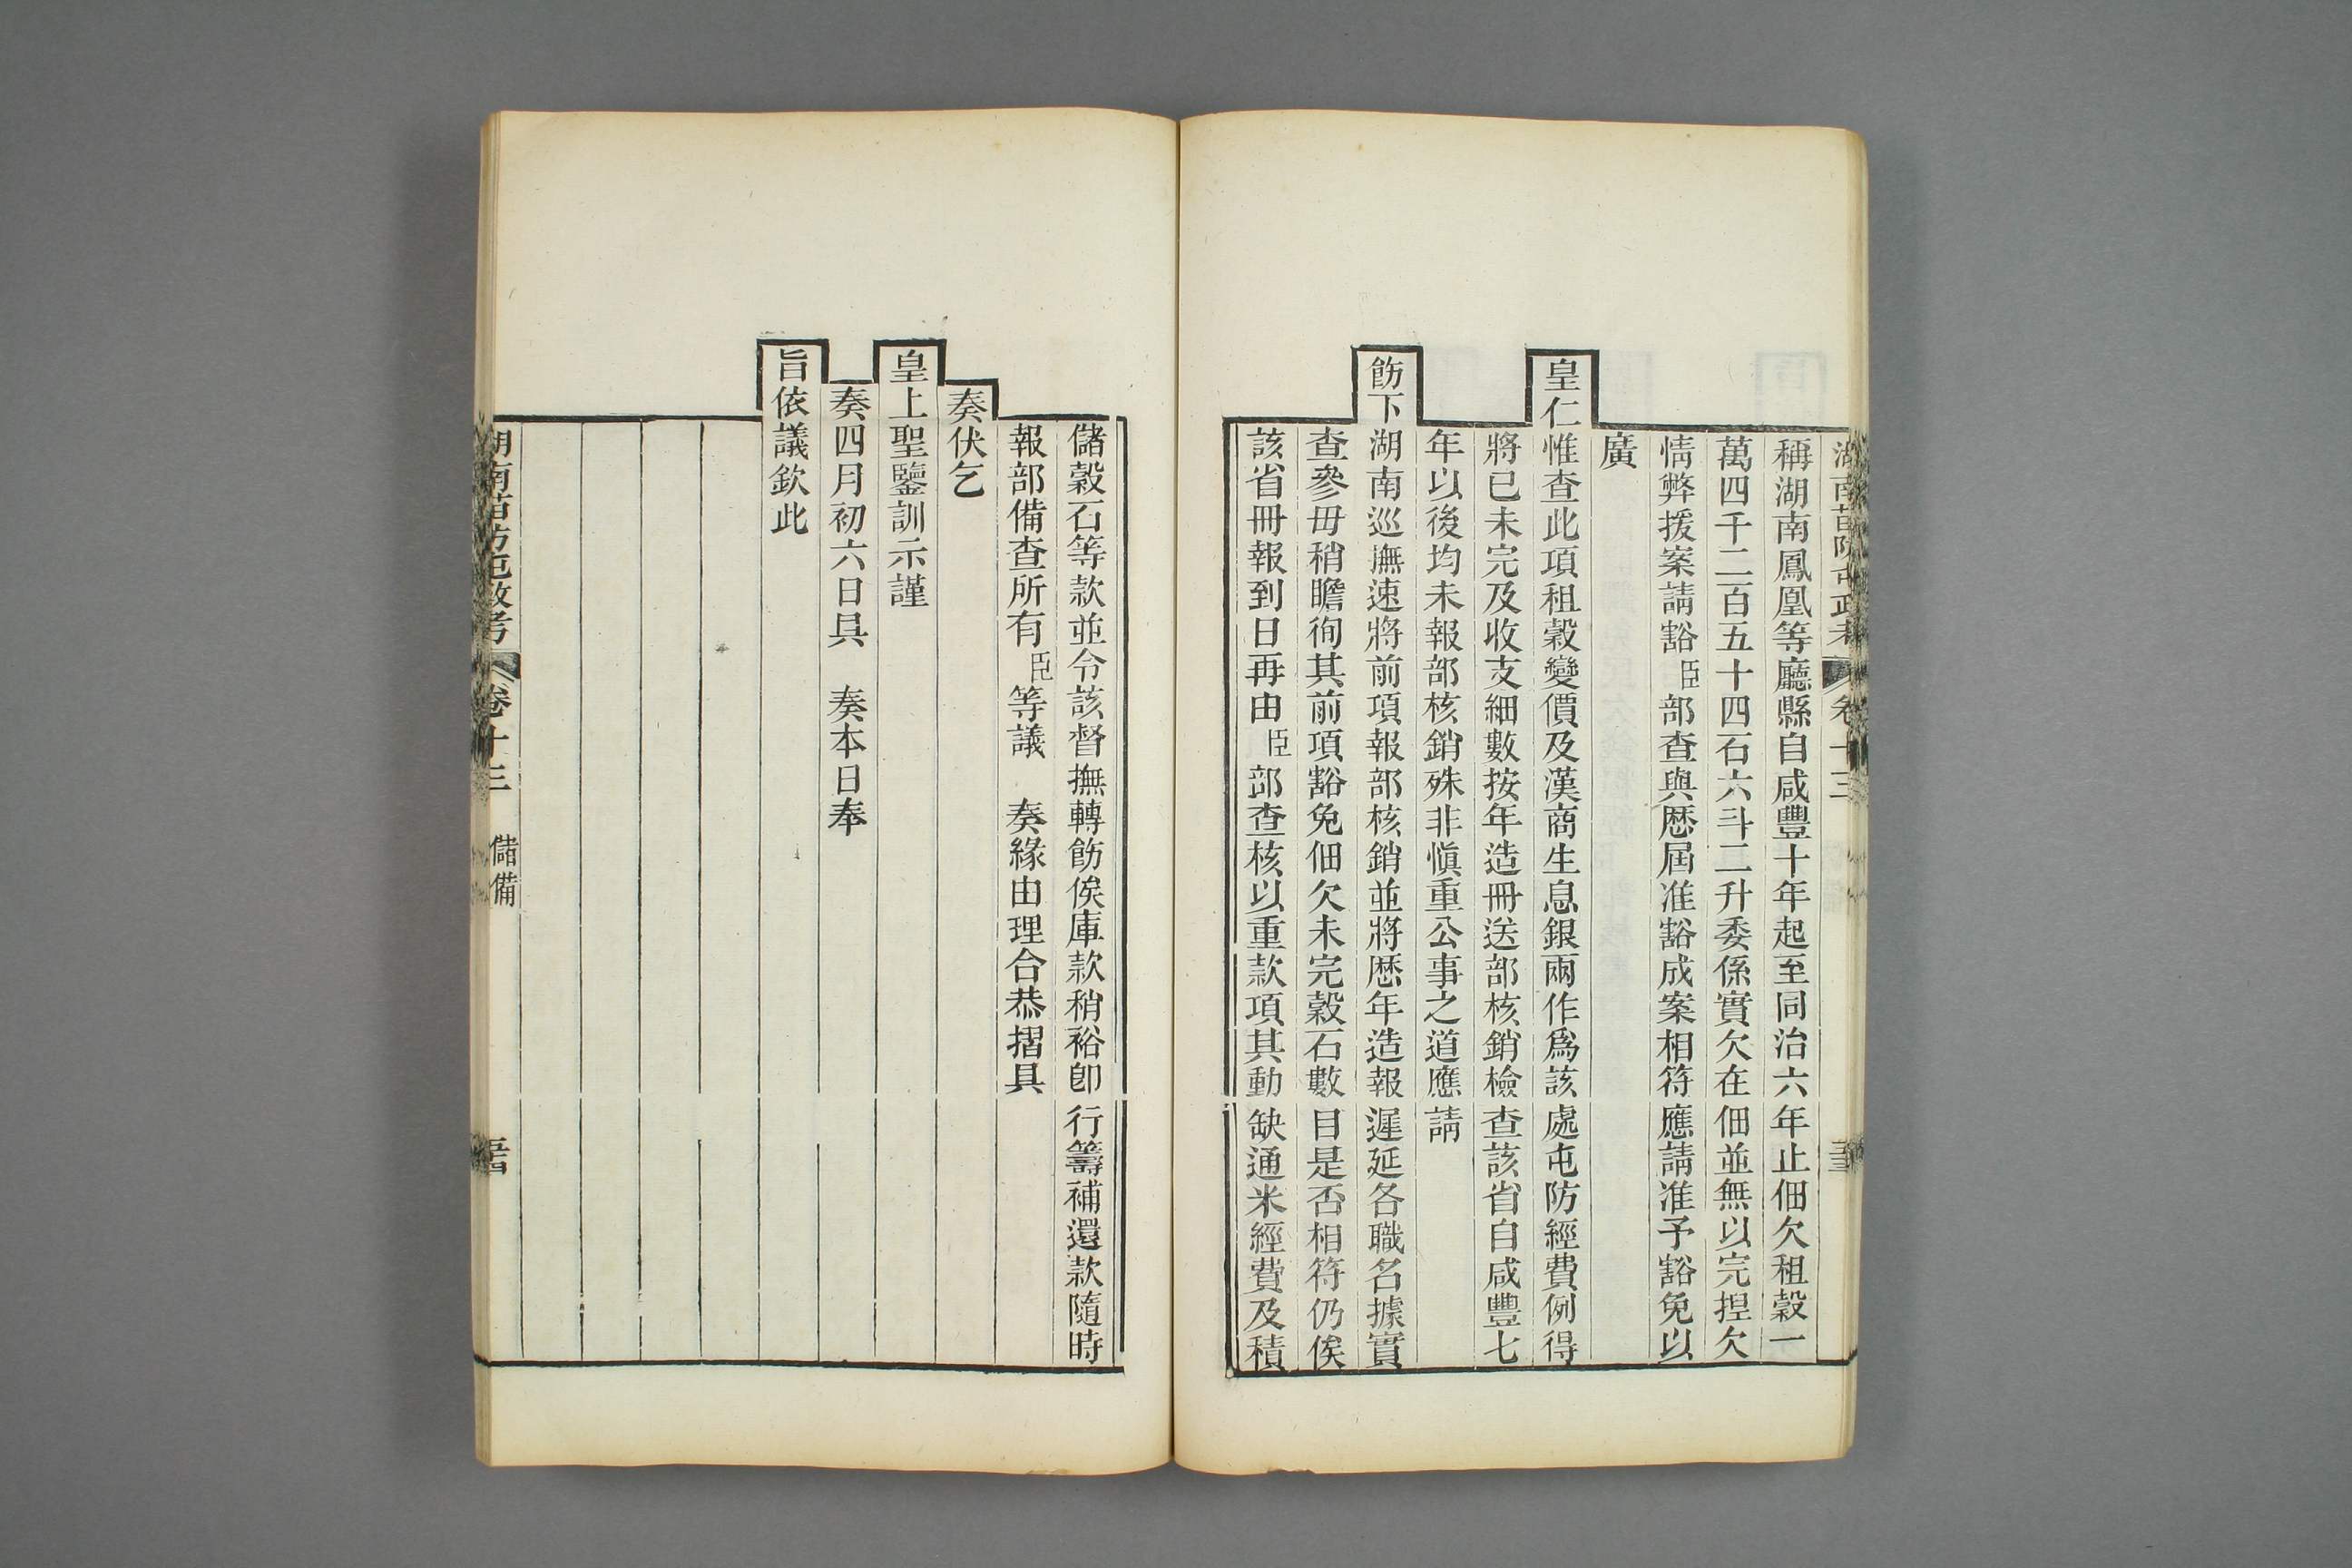 湖南苗防屯政考 卷十三
稱湖南鳳凰等廳縣自咸豐十年起至同治六年止佃欠租穀一
萬四千二百五十四石六斗二升委係實欠在佃並無以完捏欠
情弊援案請豁臣部查與歷屆准豁成案相符應請准予豁免以
廣
皇仁惟查此項租穀變價及漢商生息銀兩作爲該處屯防經費例得
將已未完及收支細數按年造冊送部核銷檢查該省自咸豐七
年以後均未報部核銷殊非愼重公事之道應請
飭下湖南巡撫速將前項報部核銷並將歷年造報遲延各職名據實
查參毋稍瞻徇其前項豁免佃欠未完穀石數目是否相符仍俟
該省冊報到日再由臣部查核以重款項其動缺通米經費及積
儲穀石等款並令該督撫轉飭俟庫款稍裕卽行籌補還款隨時
報部備查所有臣等議 奏緣由理合恭摺具
奏伏乞
皇上聖鑒訓示謹
奏四月初六日具 奏本日奉
旨依議欽此
湖南苗防屯政考 卷十三 儲備